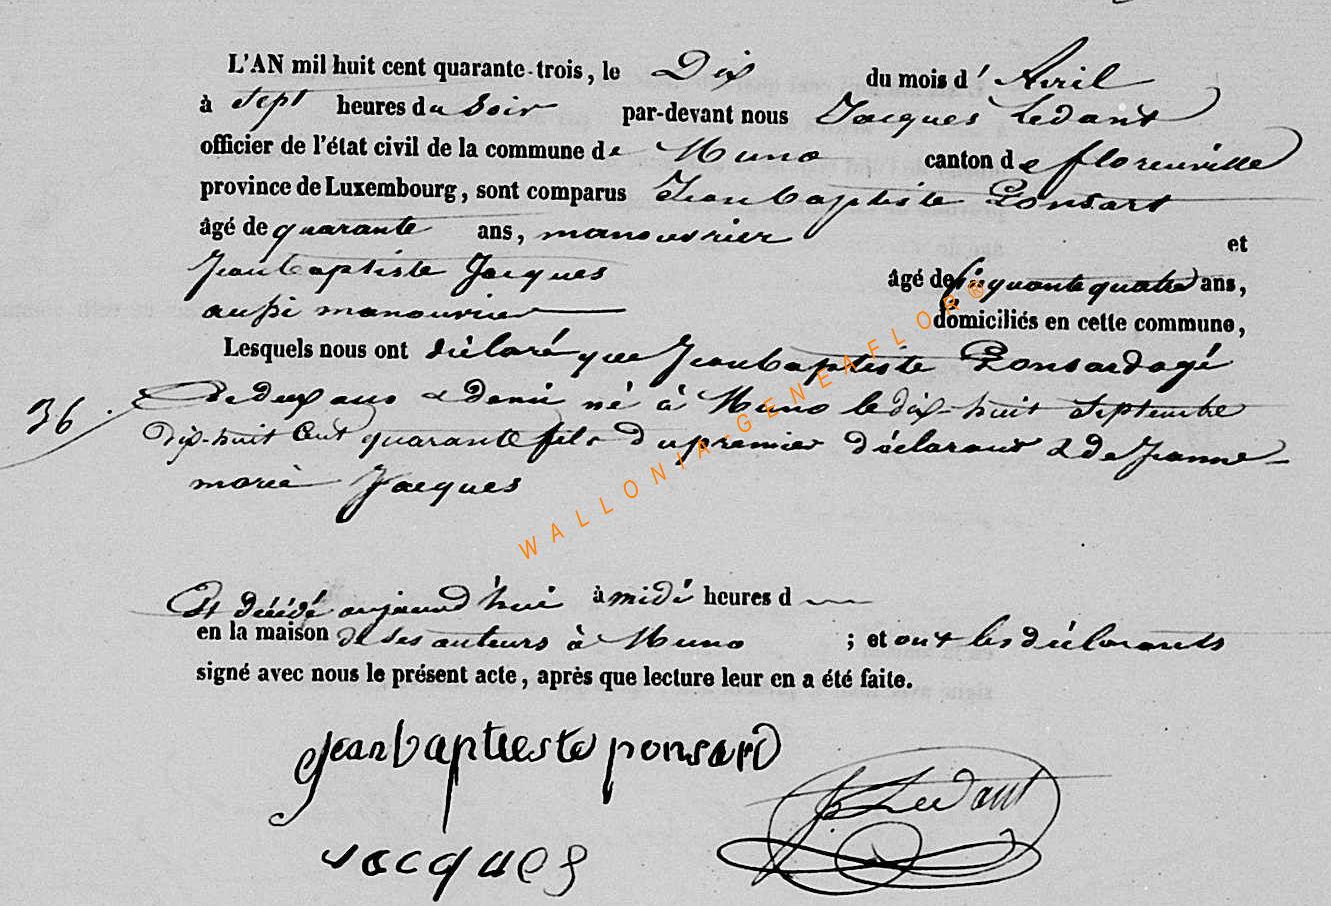 L'AN mil huit cent quarante-trois, le Dix du mois d' Avril
à sept heures du Soir par-devant nous Jacques Ledant
officier de l'état civil de la commune de Muno canton de florenville
province de Luxembourg, sont comparus Jean baptiste Ponsart
âgé de quarante ans, manouvrier et
Jean baptiste Jacques âgé de cinquante quatre ans,
aussi manouvrier domiciliés en cette commune,
Lesquels nous ont déclaré que Jean baptiste Ponsard agé
36 De deux ans & demi né à Muno le dix-huit Septembre
Dix-huit Cent quarante fils du premier déclarant & de Jeanne
marie Jacques
Et décédé aujourd'hui à midi heures d
en la maison de ses auteurs à Muno ; et ont les déclarants
signé avec nous le présent acte, après que lecture leur en a été faite.
Jean baptieste ponsard
J Ledant
Jacques
WALLONIA-GENEAFLOR®